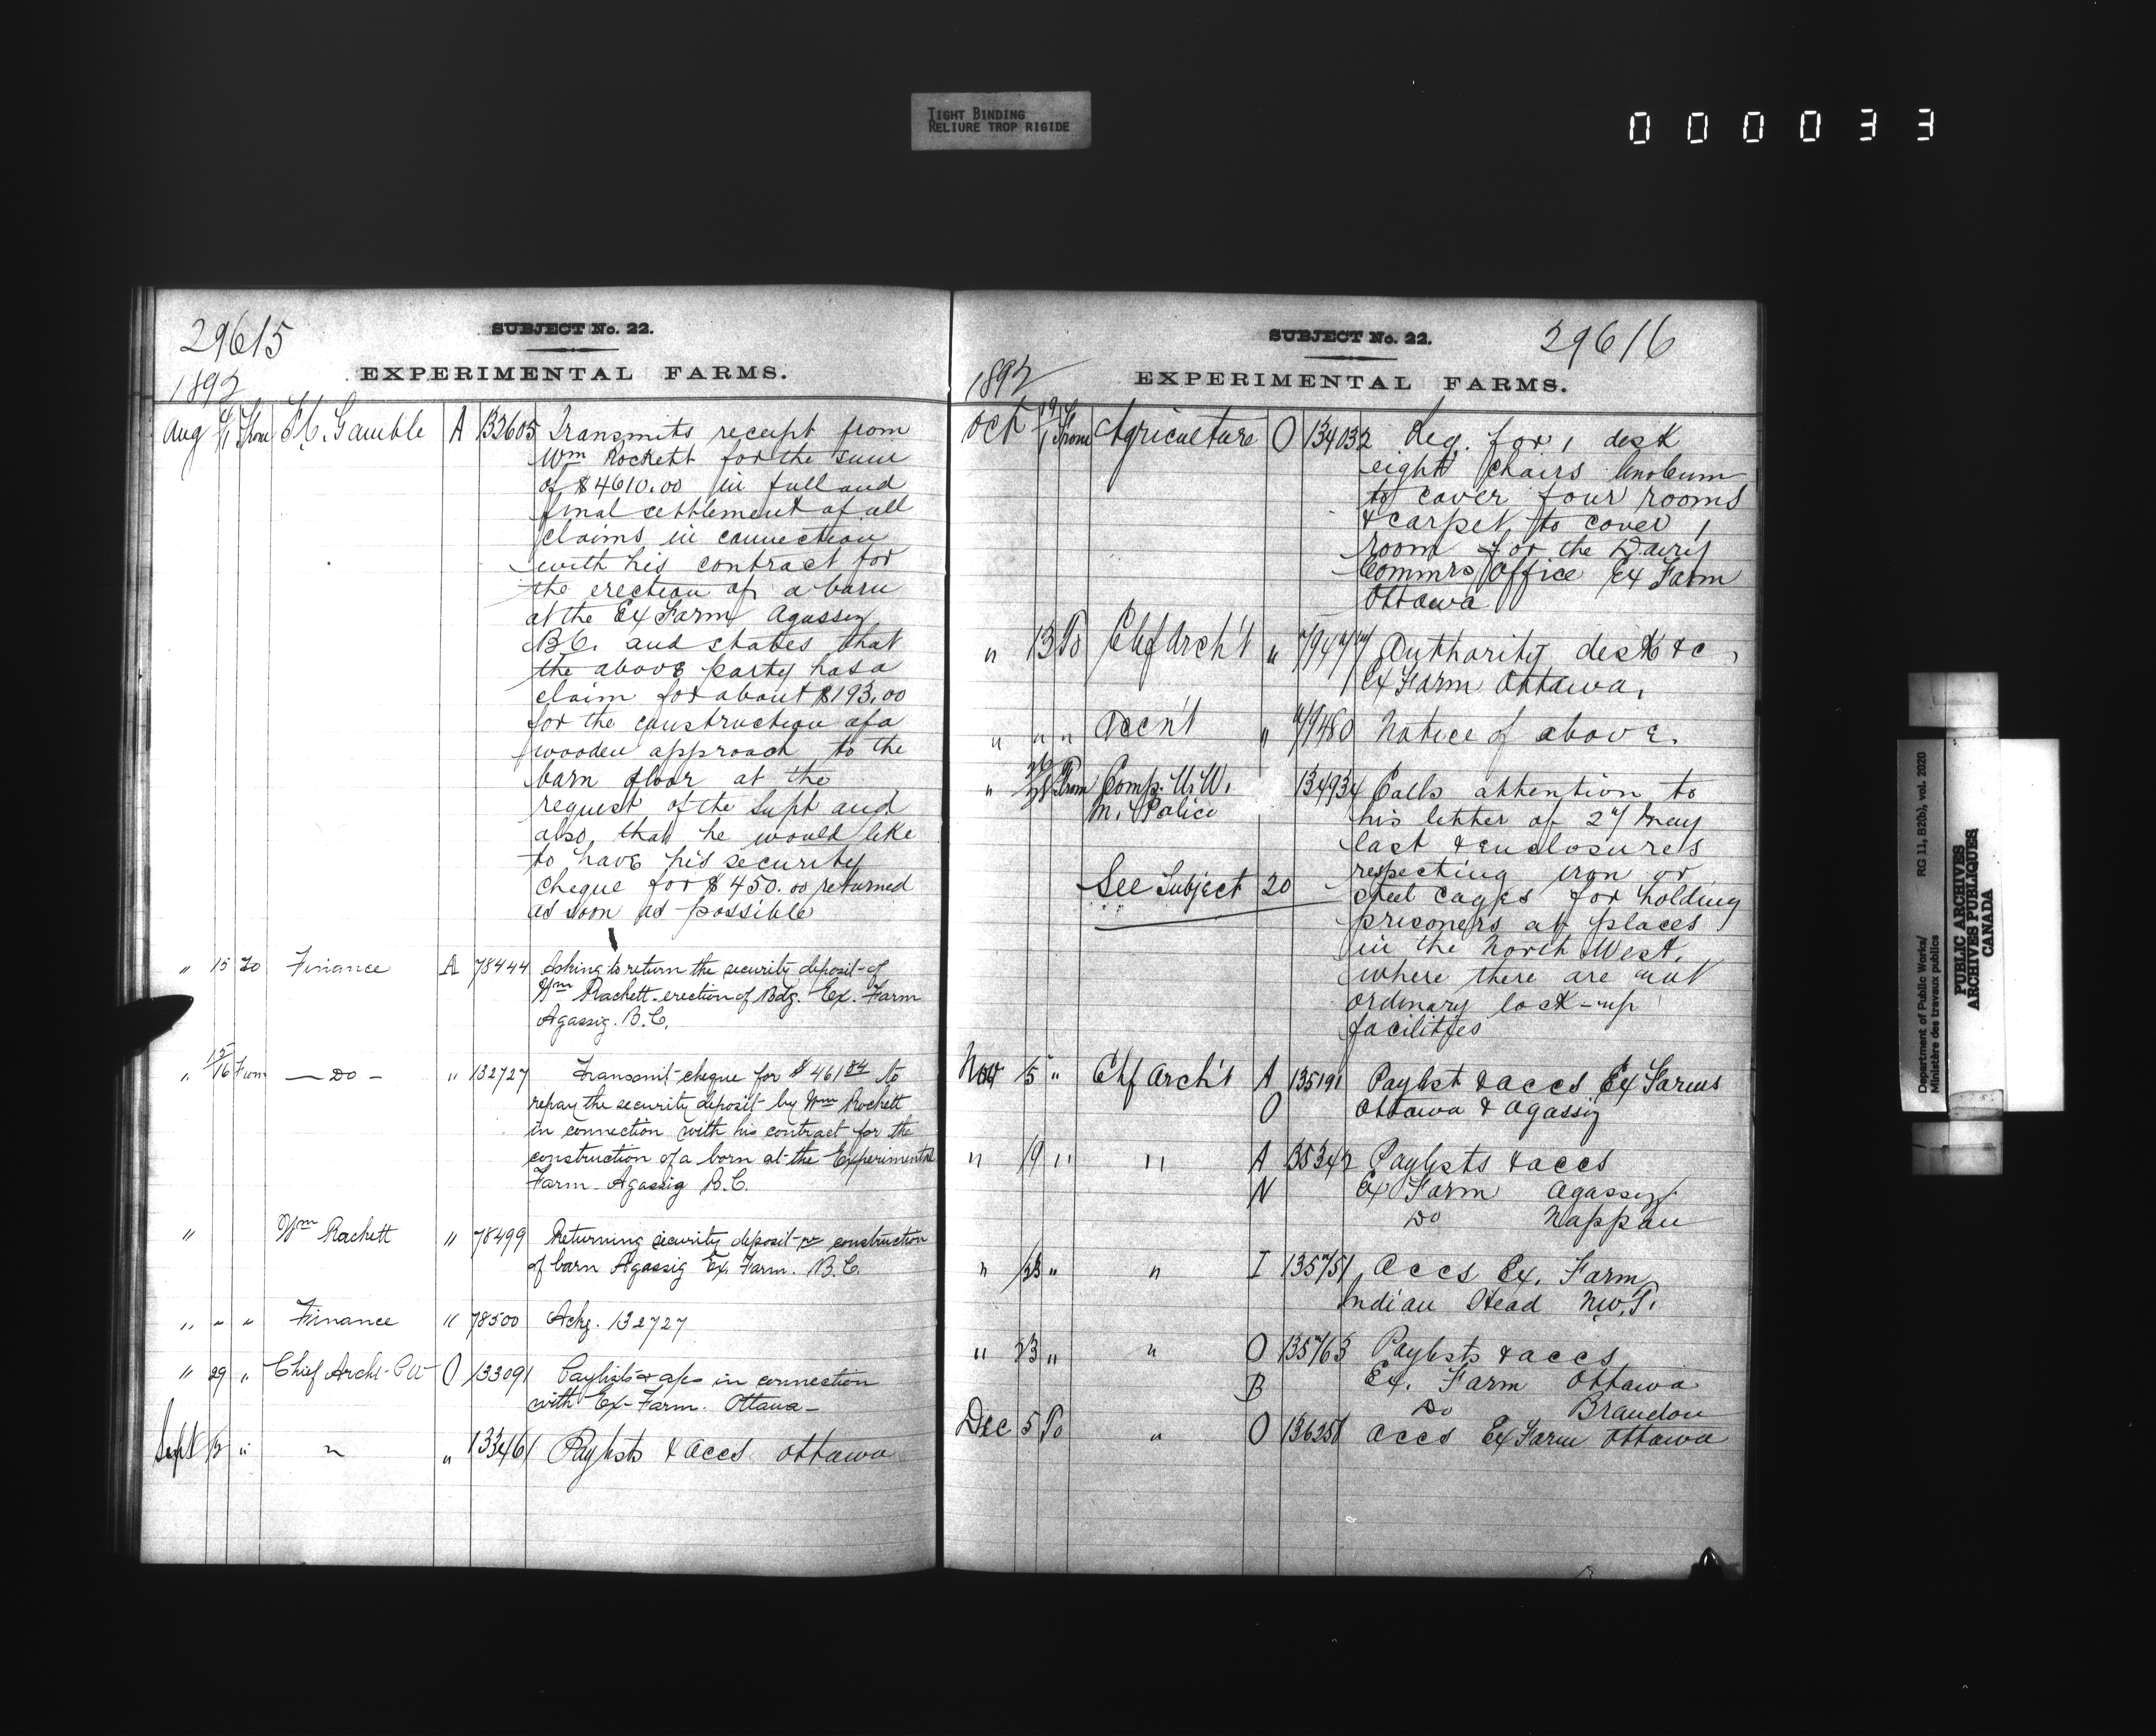 TIGHT BINDING
RELIURE TROP RIGIDE
000033
29615
SUBJECT No. 22.
EXPERIMENTAL FARMS.
1892
Aug 4/11 From F.C. Gamble A 132605 Transmits receipt from
Wm Rockett for the sum
of $4610.00 in full and
final settlement of all
claims in connection
with his contract for
the erection of a barn
at the Ex Farm Agassiz
B.C. and states that
the above party has a
claim for about $193.00
for the construction of a
wooden approach to the
barn floor at the
request of the Supt and
also that he would like
to have his security
cheque for $450.00 returned
as soon as possible
" 15 To Finance A 78444 Asking to return the security deposit of
Wm Rackett erection of Bdg. Ex. Farm
Agassiz. B.C.
" 15/16 From — Do — " 132727 Transmit cheque for $461 84 to
repay the security deposit by Wm Rockett
in connection with his contract for the
construction of a barn at the Experimental
Farm Agassiz B.C.
" Wm Rackett " 78499 Returning security deposit re construction
of barn Agassiz Ex. Farm. B.C.
" " " Finance " 78500 Ackg. 132727
" 29 " Chief Archt P W O 133091 Paylists & a/cs in connection
with Ex-Farm. Ottawa
Sept 12 " " " 133461 Paylists & accs Ottawa
SUBJECT No. 22.
29616
1892
EXPERIMENTAL FARMS.
Oct From Agriculture O 134032 Req. for 1 desk
eight chairs linoleum
to cover four rooms
& carpet to cover 1
room for the Dairy
Commrs Office Ex Farm
Ottawa
" 13 To Chf Arch't " 79477 Authority desk &c
Ex Farm Ottawa.
" " " Accn't " 79480 Notice of above.
" From Comp. N.W. 134934 Calls attention to
M. Police his letter of 27 May
last & enclosures
respecting iron or
See Subject 20 steel cages for holding
prisoners at places
in the North West,
where there are not
ordinary lock-up
facilities
Nov 5 " Chf Arch't A 135191 Paylist & accs Ex Farms
O Ottawa & Agassiz
" 9 " " A 135342 Paylists & accs
N Ex Farm Agassiz
Do Nappan
" 23 " " I 135751 Accs Ex. Farm
Indian Head N.W.T.
" 23 " " O 135763 Paylists & accs
B Ex. Farm Ottawa
Do Brandon
Dec 5 To " O 136258 Accs Ex Farm Ottawa
Department of Public Works/ RG 11, B2(b), vol. 2020
Ministère des travaux publics
PUBLIC ARCHIVES
ARCHIVES PUBLIQUES
CANADA